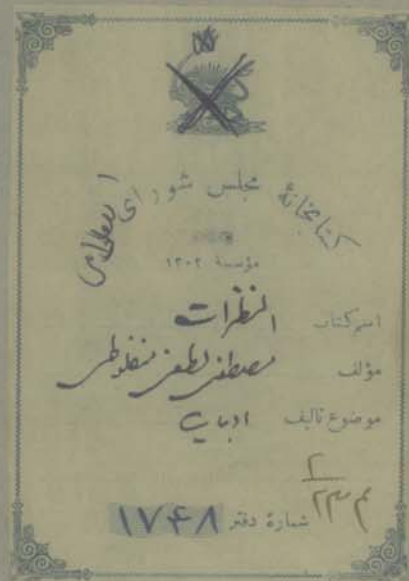 کتابخانهٔ مجلس شورای اسلامی
مؤسسهٔ ۱۳۰۲
اسم کتاب النظرات
مؤلف مصطفی لطفی منفلوطی
موضوع تألیف ادبیات
شمارهٔ دفتر ۱۷۴۸